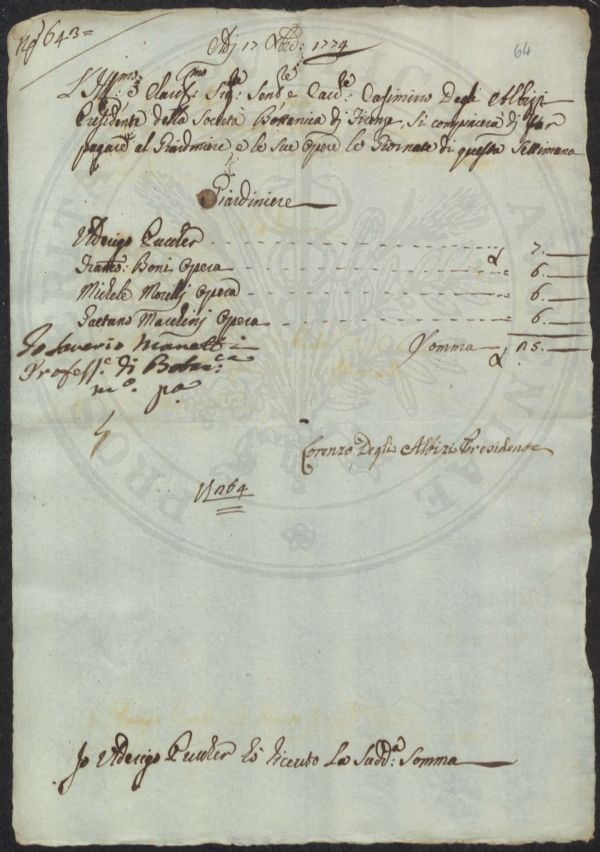 No 643=
Adj 17 Xbre: 1774
64
L'Ill:mo e Clariss:mo Sig:re Sen:re e Cav:re Casimirro Degli Albizi
Presidente della Società Bottanica di Firenze, Si compiacerà di far
pagare al Giardiniere e le sue Opere le Giornate di questa Settimana
Giardiniere
Uderigo 7.
Franco: Boni Opera 6.
Michele Morelli Opera 6.
Gaetano Opera 6.
Somma 25.
Io Saverio Manetti
Profess:e di Botan:ca
m:o p:a
Lorenzo Degli Albizi Presidente
N 264
Io Uderigo Ho ricevuto La Sudd:a Somma